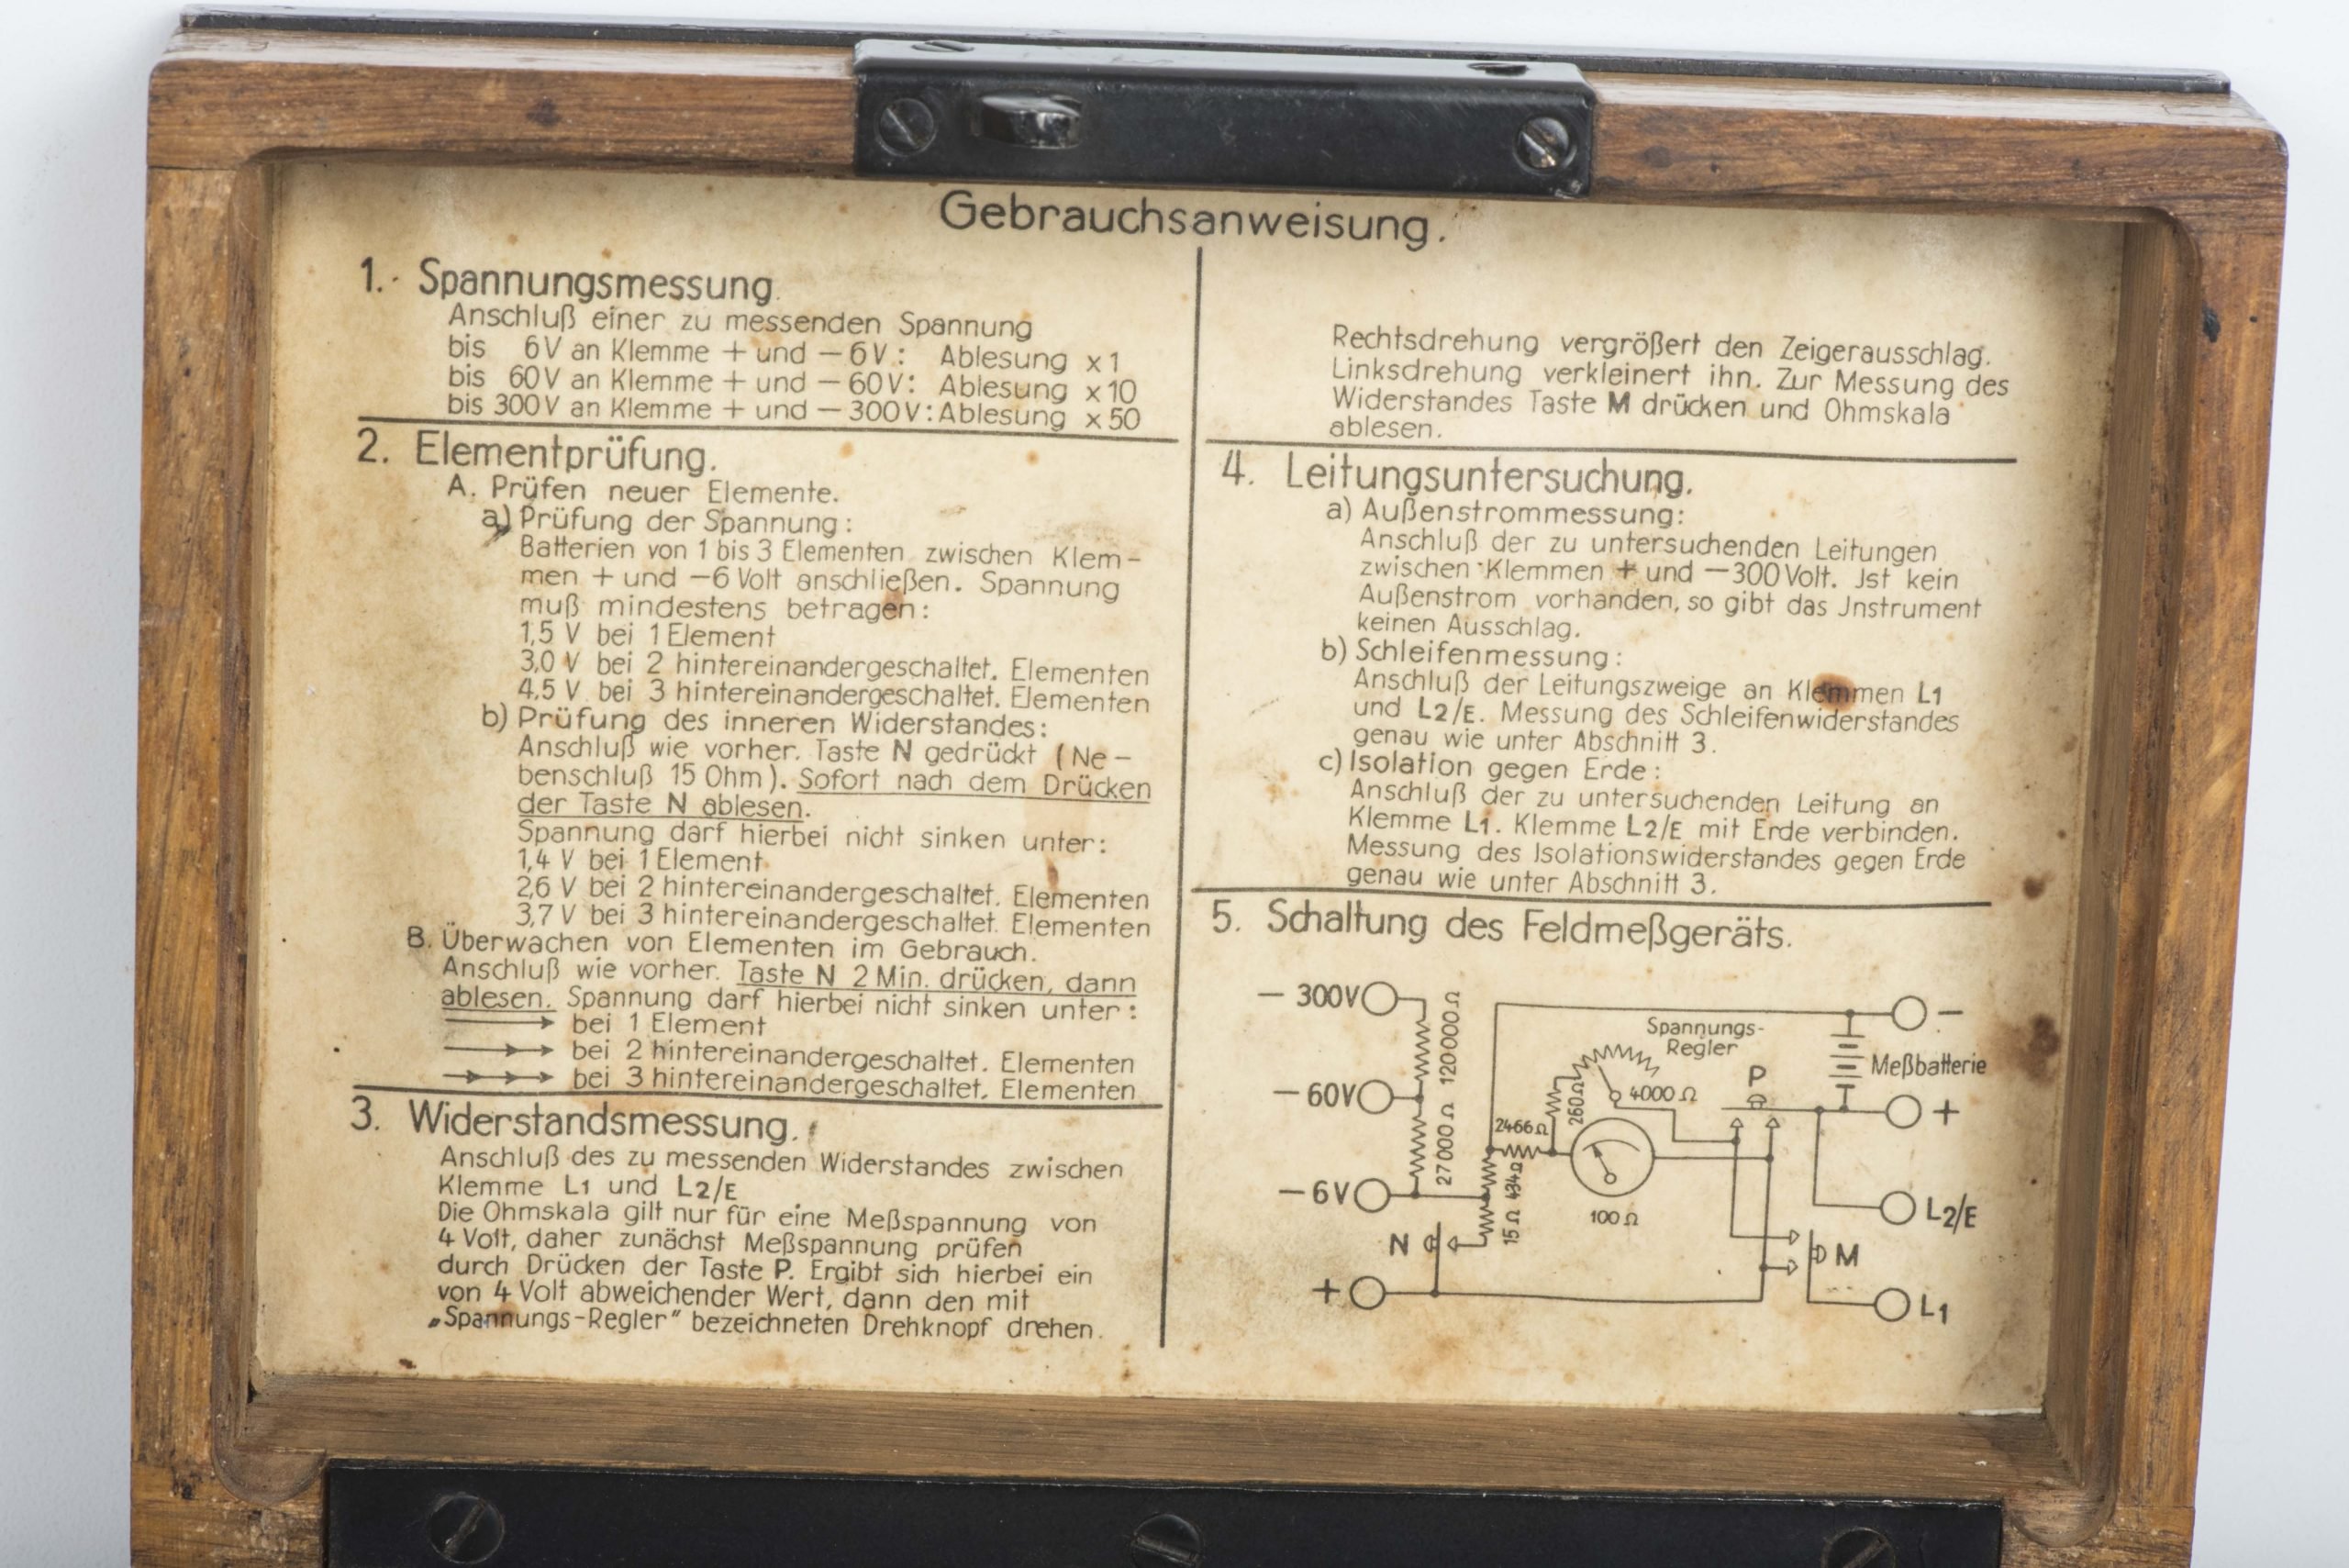 Gebrauchsanweisung.
1. Spannungsmessung.
Anschluß einer zu messenden Spannung
bis 6V an Klemme + und – 6V: Ablesung x1
bis 60V an Klemme + und – 60V: Ablesung x10
bis 300V an Klemme + und – 300V: Ablesung x50
2. Elementprüfung.
A. Prüfen neuer Elemente.
a) Prüfung der Spannung:
Batterien von 1 bis 3 Elementen zwischen Klem-
men + und –6 Volt anschließen. Spannung
muß mindestens betragen:
1,5 V bei 1 Element
3,0 V bei 2 hintereinandergeschaltet. Elementen
4,5 V bei 3 hintereinandergeschaltet. Elementen
b) Prüfung des inneren Widerstandes:
Anschluß wie vorher. Taste N gedrückt (Ne-
benschluß 15 Ohm). Sofort nach dem Drücken
der Taste N ablesen.
Spannung darf hierbei nicht sinken unter:
1,4 V bei 1 Element
2,6 V bei 2 hintereinandergeschaltet. Elementen
3,7 V bei 3 hintereinandergeschaltet. Elementen
B. Überwachen von Elementen im Gebrauch.
Anschluß wie vorher. Taste N 2 Min. drücken, dann
ablesen. Spannung darf hierbei nicht sinken unter:
bei 1 Element
bei 2 hintereinandergeschaltet. Elementen
bei 3 hintereinandergeschaltet. Elementen
3. Widerstandsmessung.
Anschluß des zu messenden Widerstandes zwischen
Klemme L1 und L2/E
Die Ohmskala gilt nur für eine Meßspannung von
4 Volt, daher zunächst Meßspannung prüfen
durch Drücken der Taste P. Ergibt sich hierbei ein
von 4 Volt abweichender Wert, dann den mit
„Spannungs-Regler" bezeichneten Drehknopf drehen.
Rechtsdrehung vergrößert den Zeigerausschlag.
Linksdrehung verkleinert ihn. Zur Messung des
Widerstandes Taste M drücken und Ohmskala
ablesen.
4. Leitungsuntersuchung.
a) Außenstrommessung:
Anschluß der zu untersuchenden Leitungen
zwischen Klemmen + und –300 Volt. Jst kein
Außenstrom vorhanden, so gibt das Jnstrument
keinen Ausschlag.
b) Schleifenmessung:
Anschluß der Leitungszweige an Klemmen L1
und L2/E. Messung des Schleifenwiderstandes
genau wie unter Abschnitt 3.
c) Isolation gegen Erde:
Anschluß der zu untersuchenden Leitung an
Klemme L1. Klemme L2/E mit Erde verbinden.
Messung des Isolationswiderstandes gegen Erde
genau wie unter Abschnitt 3.
5. Schaltung des Feldmeßgeräts.
– 300V
120000 Ω
– 60V
27000 Ω
– 6V
N
+
2466 Ω
434 Ω
15 Ω
260 Ω
Spannungs-
Regler
4000 Ω
100 Ω
P
–
Meßbatterie
+
L2/E
M
L1